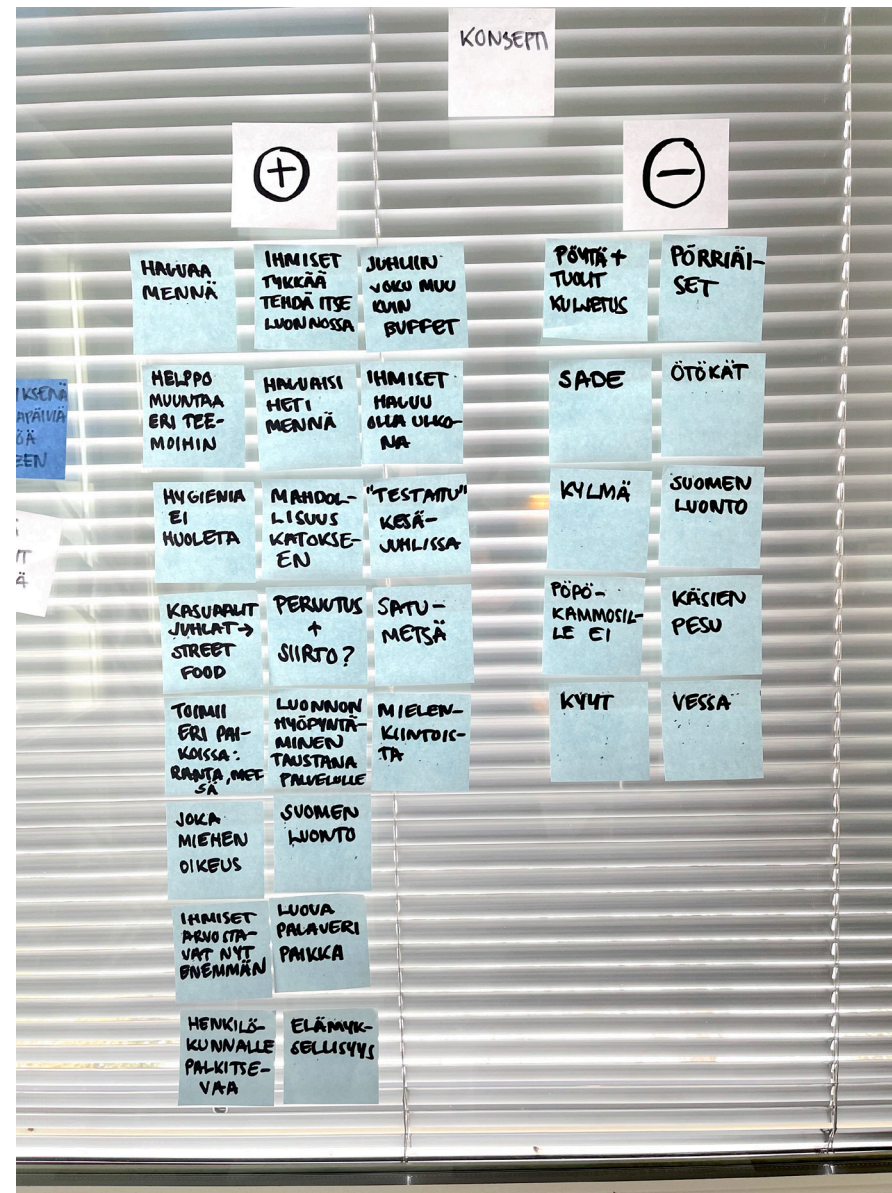 KONSEPTI
+
-
HALUAA
MENNÄ
IHMISET
TYKKÄÄ
TEHDÄ ITSE
LUONNOSSA
JUHLIIN
JOKU MUU
KUIN
BUFFET
HELPPO
MUUNTAA
ERI TEE-
MOIHIN
HALUAISI
HETI
MENNÄ
IHMISET
HALUU
OLLA ULKO-
NA
HYGIENIA
EI
HUOLETA
MAHDOL-
LISUUS
KATOKSE-
EN
"TESTATTU"
KESÄ-
JUHLISSA
KASUAALIT
JUHLAT→
STREET
FOOD
PERUUTUS
+
SIIRTO?
SATU-
METSÄ
TOIMII
ERI PAI-
KOISSA:
RANTA, MET
SÄ
LUONNON
HYÖPYNTÄ-
MINEN
TAUSTANA
PALVELULLE
MIELEN-
KIINTOIS-
TA
JOKA
MIEHEN
OIKEUS
SUOMEN
LUONTO
IHMISET
ARVOSTA-
VAT NYT
ENEMMÄN
LUOVA
PALAVERI
PAIKKA
HENKILÖ-
KUNNALLE
PALKITSE-
VAA
ELÄMYK-
SELLISYYS
PÖYTÄ +
TUOLIT
KULJETUS
PÖRRIÄI-
SET
SADE
ÖTÖKÄT
KYLMÄ
SUOMEN
LUONTO
PÖPÖ-
KAMMOSIL-
LE EI
KÄSIEN
PESU
KYYT
VESSA